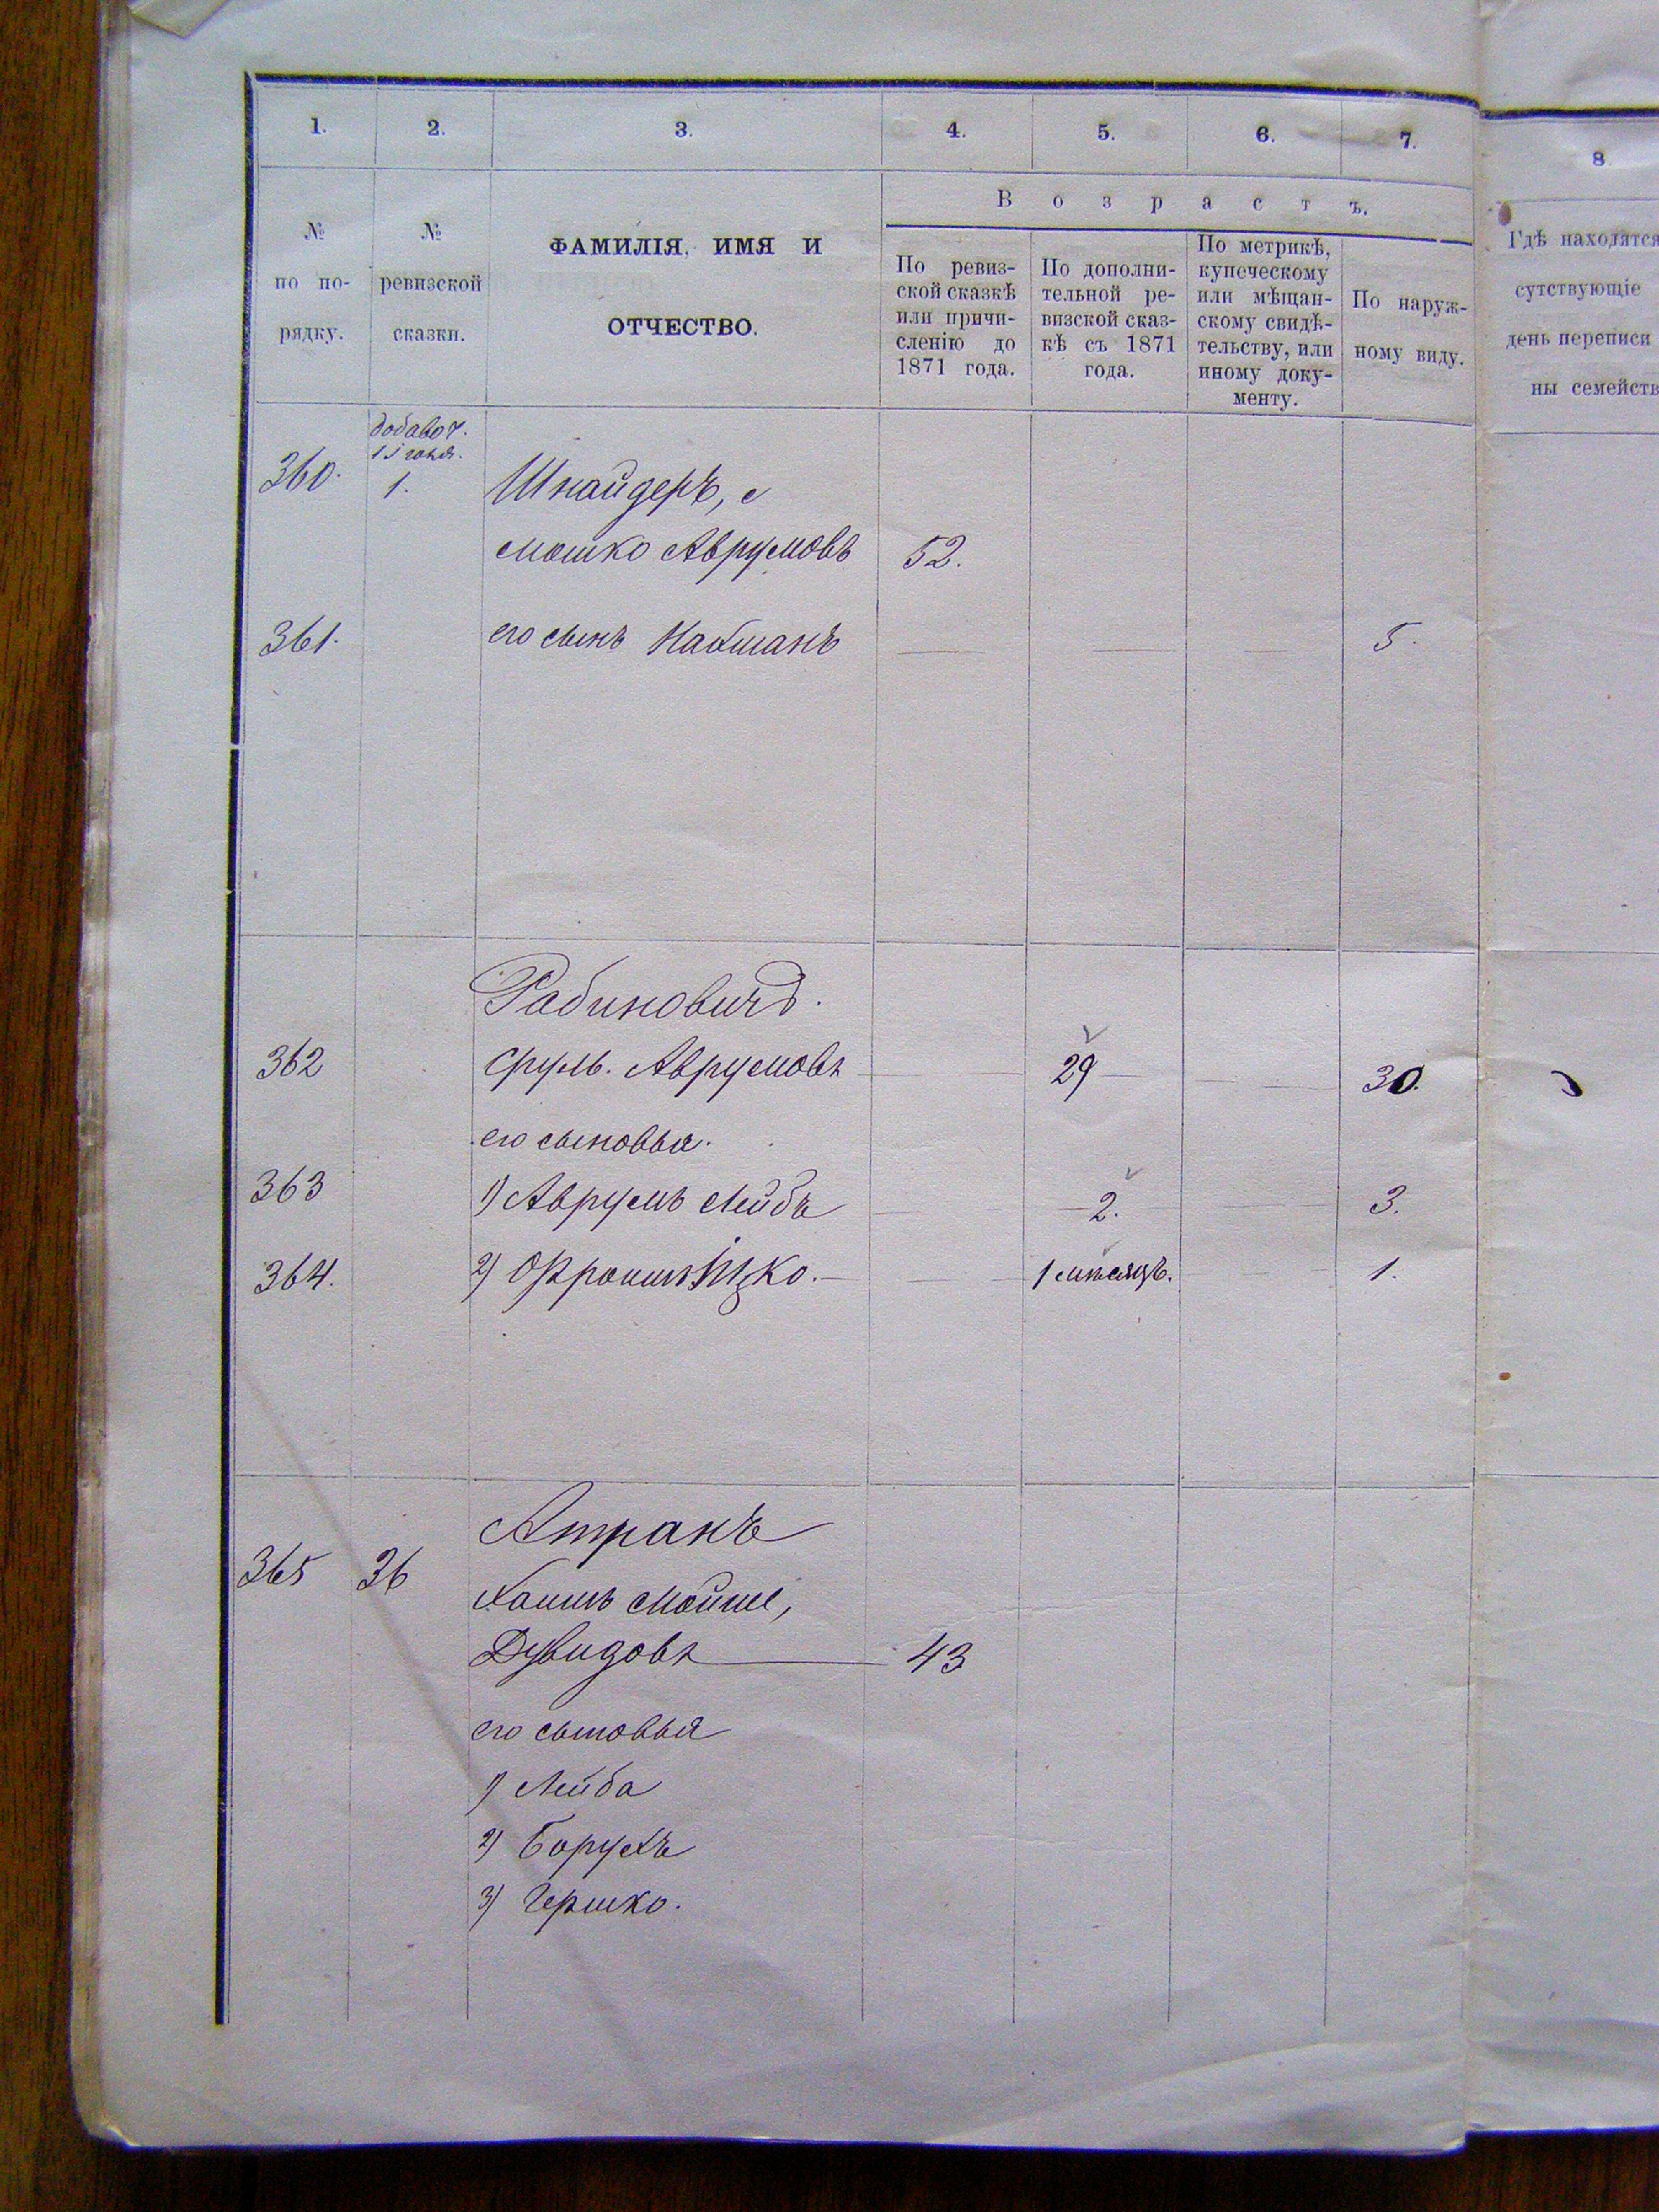 1. 2. 3. 4. 5. 6. 7. 8
Возрастъ.
№
по по-
рядку.
№
ревизской
сказки.
ФАМИЛІЯ, ИМЯ И
ОТЧЕСТВО.
По ревиз-
ской сказкѣ
или причи-
сленію до
1871 года.
По дополни-
тельной ре-
визской сказ-
кѣ съ 1871
года.
По метрикѣ,
купеческому
или мѣщан-
скому свидѣ-
тельству, или
иному доку-
менту.
По наруж-
ному виду.
Гдѣ находятся
сутствующіе
день переписи
ны семейств
добавоч.
360. 1. Шнайдеръ,
Мошко Аврумовъ 52.
361. его сынъ Нахманъ 5.
Рабиновичъ.
362 Сруль. Аврумовъ 29 30.
его сыновья.
363 1) Аврумъ Лейбъ 2. 3.
364. 2) Фроимъ Ицко. 1 мѣсяцъ. 1.
Атранъ
365 36 Хаимъ Мойше,
Дувидовъ 43
его сыновья
1) Лейба
2) Борухъ
3) Гершко.